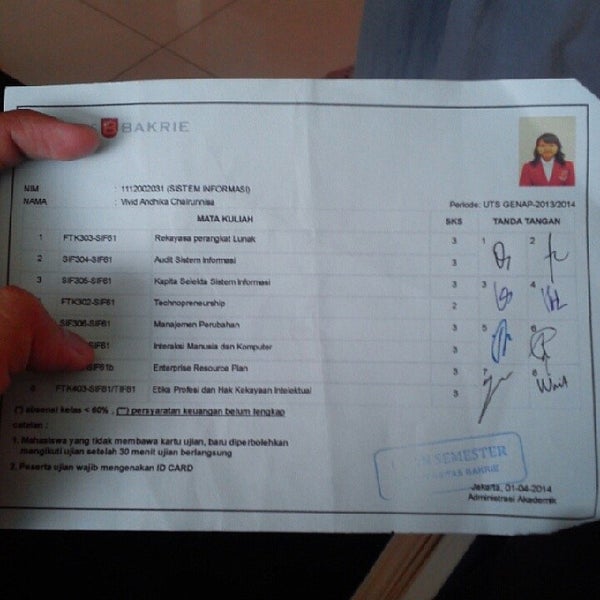 BAKRIE
NIM : 1112002031 (SISTEM INFORMASI)
NAMA : Vivid Andhika Chairunnisa
Periode: UTS GENAP-2013/2014
MATA KULIAH SKS TANDA TANGAN
1 FTK303-SIF61 Rekayasa perangkat Lunak 3 1 2
2 SIF304-SIF61 Audit Sistem Informasi 3
3 SIF305-SIF61 Kapita Selekta Sistem Informasi 3 3 4
FTK302-SIF61 Technopreneurship 2
SIF306-SIF61 Manajemen Perubahan 3 5 6
SIF61 Interaksi Manusia dan Komputer 3
SIF61b Enterprise Resource Plan 3 7 8
8 FTK403-SIF61/TIF61 Etika Profesi dan Hak Kekayaan Intelektual 3
(*) absensi kelas < 60% , (**) persyaratan keuangan belum lengkap
catatan :
1. Mahasiswa yang tidak membawa kartu ujian, baru diperbolehkan
mengikuti ujian setelah 30 menit ujian berlangsung
2. Peserta ujian wajib mengenakan ID CARD
SEMESTER
BAKRIE
Jakarta, 01-04-2014
Administrasi Akademik